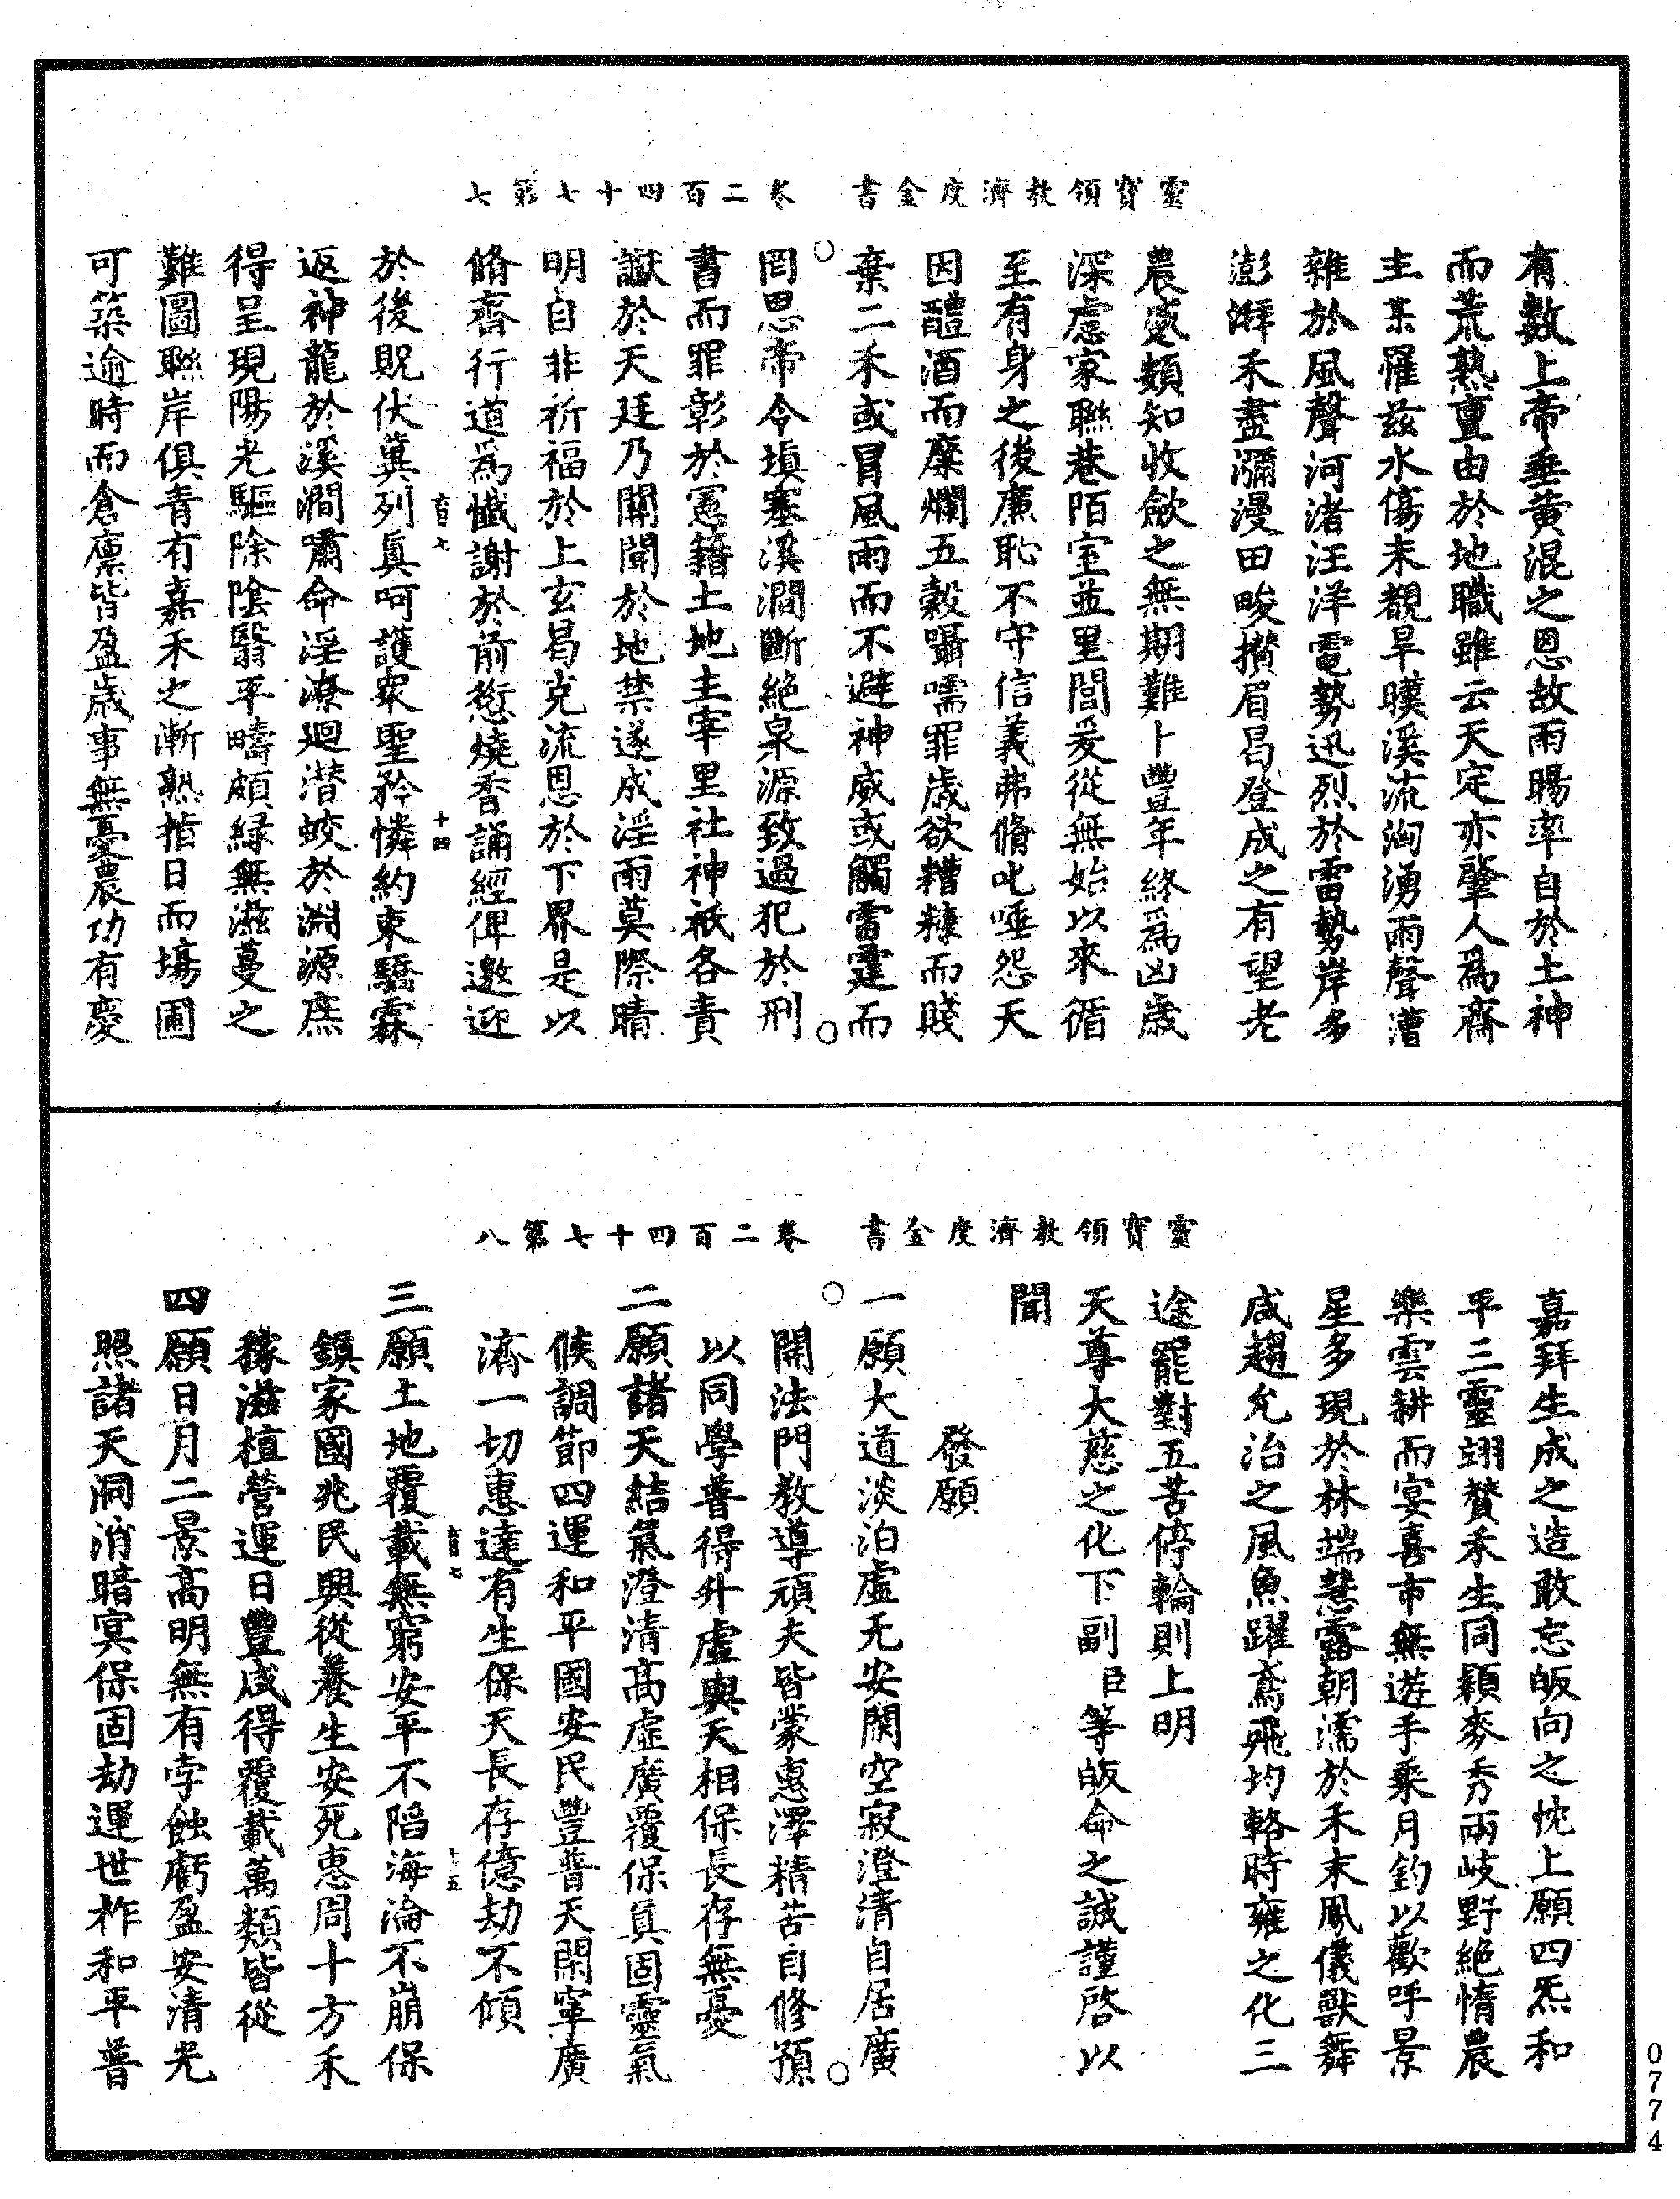 靈寶領教濟度金書　卷二百四十七第七
有數上帝垂黃混之恩故雨暘率自於土神
而荒熟亶由於地職雖云天定亦肇人為齋
主某罹茲水傷未覩旱暵溪流洶湧雨聲漕
雜於風聲河渚汪洋電勢迅烈於雷勢岸多
澎湃禾盡瀰漫田畯攢眉曷登成之有望老
農蹙頞知收斂之無期難卜豐年終為凶歲
深慮家聯巷陌室並里閭爰從無始以來循
至有身之後廉恥不守信義弗脩叱唾怨天
因醴酒而糜爛五穀囁嚅罪歲欲糟糠而賤
棄二禾或冒風雨而不避神威或觸雷霆而
罔思帝令填塞溪澗斷絕泉源致過犯於刑
書而罪彰於憲籍土地主宰里社神祇各責
讞於天廷乃關聞於地禁遂成淫雨莫際晴
明自非祈福於上玄曷克流恩於下界是以
脩齋行道為懺謝於前愆燒香誦經俾邀迎
於後貺伏冀列真呵護眾聖矜憐約束驕霖
育七
十四
返神龍於溪澗嘯命淫潦迴潛蛟於淵源庶
得呈現陽光驅除陰翳平疇頗綠無滋蔓之
難圖聯岸俱青有嘉禾之漸熟指日而場圃
可築逾時而倉廩皆盈歲事無憂農功有慶
靈寶領教濟度金書　卷二百四十七第八
嘉拜生成之造敢忘皈向之忱上願四炁和
平三靈翊贊禾生同穎麥秀兩岐野絕惰農
樂雲耕而宴喜市無遊手乘月釣以歡呼景
星多現於林端慧露朝濡於禾末鳳儀獸舞
咸趨允治之風魚躍鳶飛均輅時雍之化三
途罷對五苦停輪則上明
天尊大慈之化下副臣等皈命之誠謹啓以
聞
發願
一願大道淡泊虛无安閑空寂澄清自居廣
開法門教導頑夫皆蒙惠澤精苦自修預
以同學普得升虛與天相保長存無憂
二願諸天結氣澄清高虛廣覆保真固靈氣
候調節四運和平國安民豐普天閑寧廣
濟一切惠達有生保天長存億劫不傾
三願土地覆載無窮安平不陷海淪不崩保
育七
十五
鎮家國兆民興從養生安死惠周十方禾
稼滋植營運日豐咸得覆載萬類皆從
四願日月二景高明無有孛蝕虧盈安清光
照諸天洞消暗冥保固劫運世祚和平普
0774